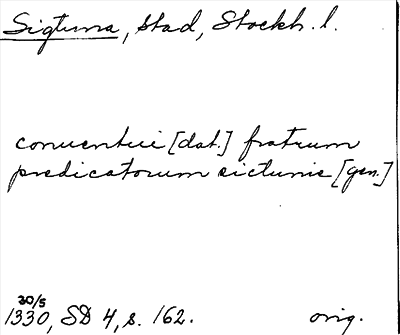 Sigtuna, stad, Stockh. l.
conuentui [dat.] fratrum
predicatorum sictunie [gen.]
30/5
1330, SD 4, s. 162. orig.